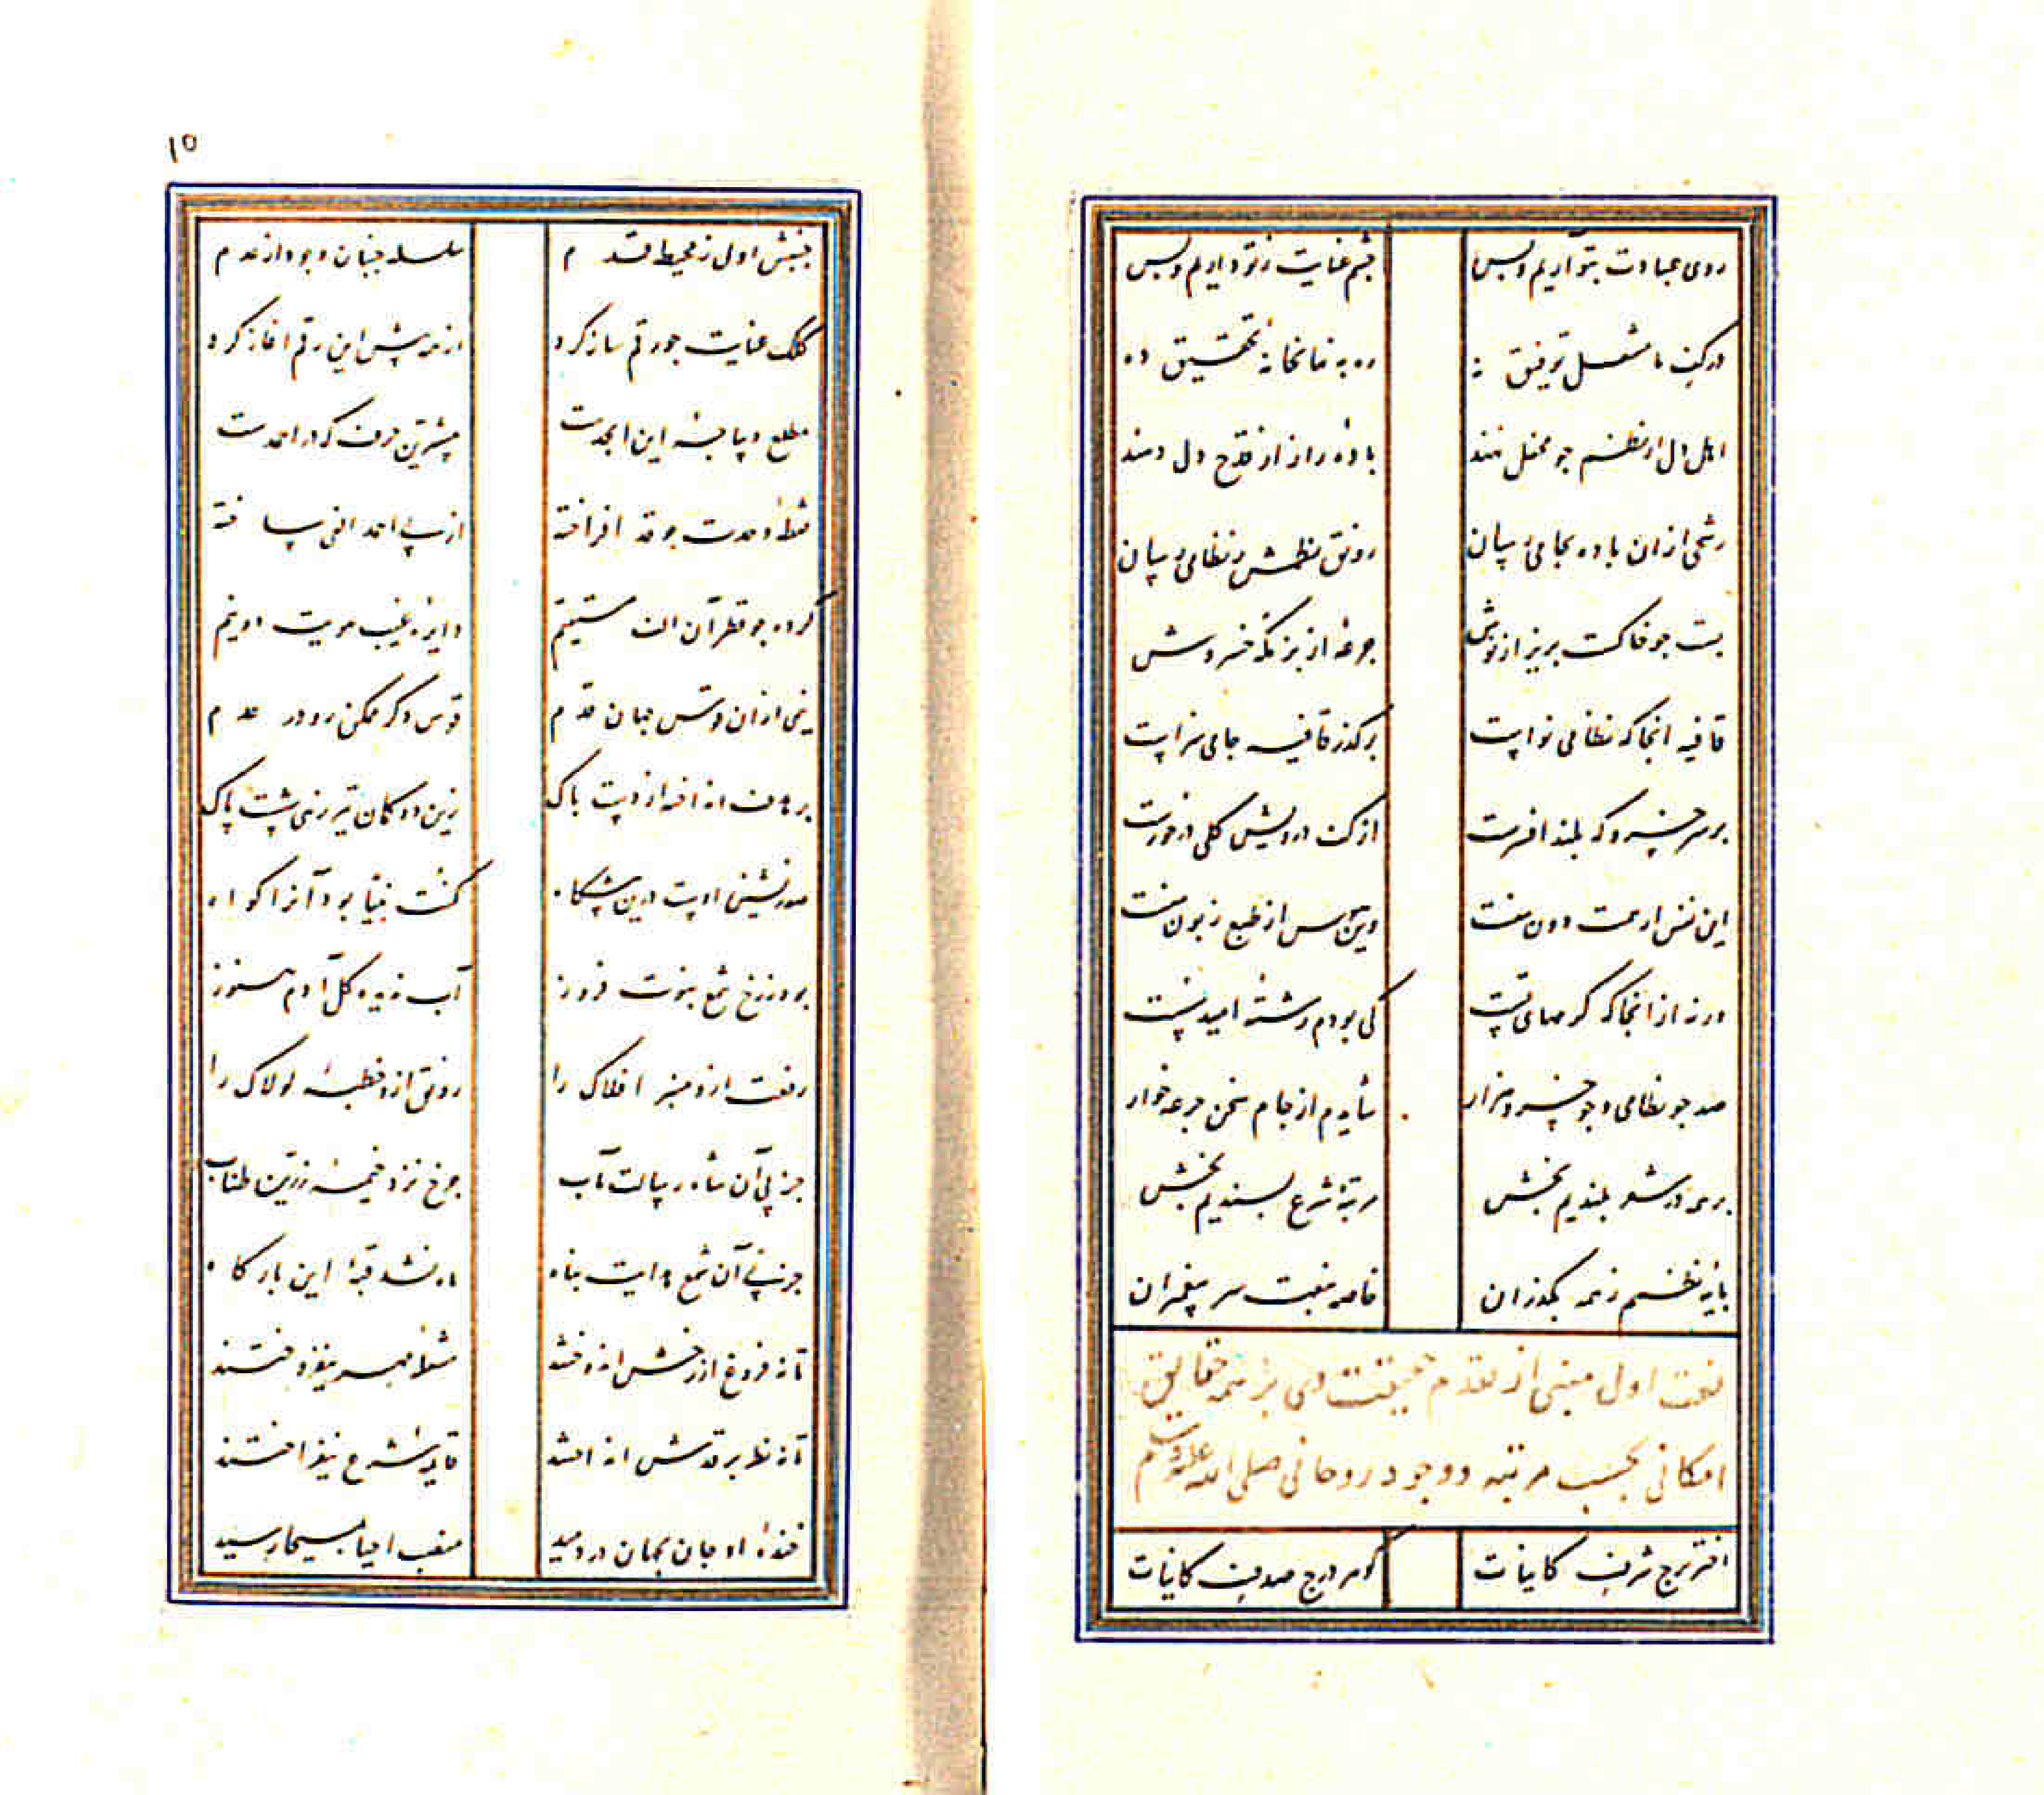 روی عبادت بتو آریم و بس چشم عنایت ز تو داریم و بس
در کف ما مشعل توفیق نه ره به نهانخانه تحقیق ده
اهل دل از نظم جو محفل نهند باده راز از قدح دل دهند
رشحی ازان باده بجامی رسان رونق نظمش ز نظامی رسان
پست جو خاکست بریز از نوش جرعه از بزمکه خسروش
قافیه انجا که نظامی نواست بر کذر قافیه جامی سزاست
بر سر خسرو که بلند افسرست از کف درویش کلی درخورست
این نفس از همت دون منست وین هوس از طبع زبون منست
ورنه از انجا که کرمهای تست کی بودم رشته امید سست
صد جو نظامی و جو خسرو هزار شایدم از جام سخن جرعه خوار
بر همه در شعر بلندیم بخش مرتبه شرع پسندیم بخش
پایه نظمم ز همه بکذران خاصه بنعت سر پیغمبران
نعت اول مبنی از تقدم حقیقت وی بر همه حقایق
امکانی بحسب مرتبه و وجود روحانی صلی الله علیه وسلم
اختر برج شرف کاینات کوهر درج صدف کاینات
۱۵
جنبش اول ز محیط قدم سلسله جنبان وجود از عدم
کلک عنایت جو رقم ساز کرد از همه پیش این رقم اغاز کرد
مطلع دیباجه این ابجدست پیشترین حرف که در احمدست
نقطه وحدت جو قد افراخته از پی احمد الفی ساخته
کرده جو قطر آن الف مستقیم دایره غیب هویت دو نیم
نیمی ازان قوس جهان قدم قوس دکر ممکن رو در عدم
بر هدف انداخته از دست پاک زین دو کمان تیر رمی پشت پاک
صدرنشینی اوست درین پیشکاه کنت نبیا بود آنرا کواه
بود ز رخ شمع نبوت فروز آب نزده کل آدم هنوز
رفعت ازو منبر افلاک را رونق ازو خطبه لولاک را
جز پی آن شاه رسالت مآب جرخ نزد خیمه زرین طناب
جز پی آن شمع هدایت پناه ماه نشد قبه این بارکاه
تا نه فروغ از رخش اندوختند مشعله مهر نیفروختند
تا نه نظر بر قدش انداختند قاید شرع نیفراختند
خنده او جان بجهان در دمید منصب احیا بمسیحا رسید